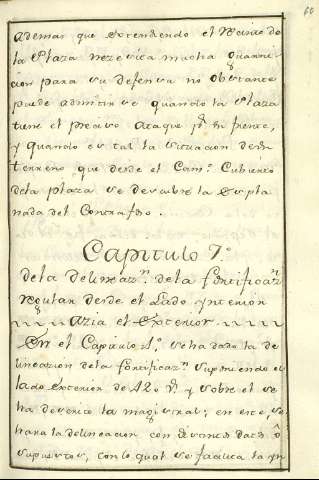 60
ademas que extendiendo el recinto de
la Plaza necesita mucha Guarni-
cion para su defensa no obstante
puede admitirse quando la Plaza
tiene el preciso Ataque pr. su frente,
y quando es tal la situacion de el
terreno que desde el Camo. Cubierto
dela plaza se descubre la Expla
nada del Contrafoso.
Capitulo 7.o
dela delineazn. dela fortificazn.
regular desde el Lado ynterior
azia el exterior
En el Capitulo 1.o se ha dado la de
lineacion dela fortificazn. suponiendo el
lado exterior de 120 Ts. y sobre el se
ha descrito la magistral; en este, se
hara la delineacion con distintos datos ô
supuestos, con lo qual se facilita la yn